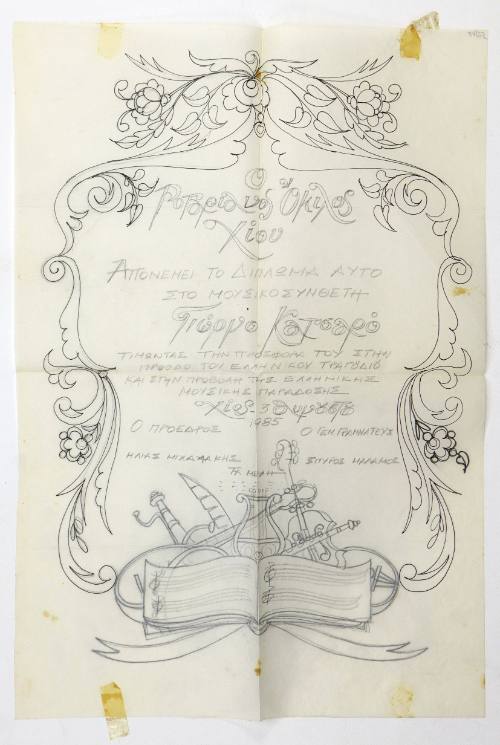 Ὁ
Ροταριανός Ὅμιλος
Χίου
ΑΠΟΝΕΜΕΙ ΤΟ ΔΙΠΛΩΜΑ ΑΥΤΟ
ΣΤΟ ΜΟΥΣΙΚΟΣΥΝΘΕΤΗ
Γιῶργο Κατσαρό
ΤΙΜΩΝΤΑΣ ΤΗΝ ΠΡΟΣΦΟΡΑ ΤΟΥ ΣΤΗΝ
ΠΡΟΟΔΟ ΤΟΥ ΕΛΛΗΝΙΚΟΥ ΤΡΑΓΟΥΔΙΟΥ
ΚΑΙ ΣΤΗΝ ΠΡΟΒΟΛΗ ΤΗΣ ΕΛΛΗΝΙΚΗΣ
ΜΟΥΣΙΚΗΣ ΠΑΡΑΔΟΣΗΣ
Χίος
1985
Ο ΠΡΟΕΔΡΟΣ Ο ΓΕΝ ΓΡΑΜΜΑΤΕΥΣ
ΗΛΙΑΣ ΣΠΥΡΟΣ
ΤΑ ΜΕΛΗ